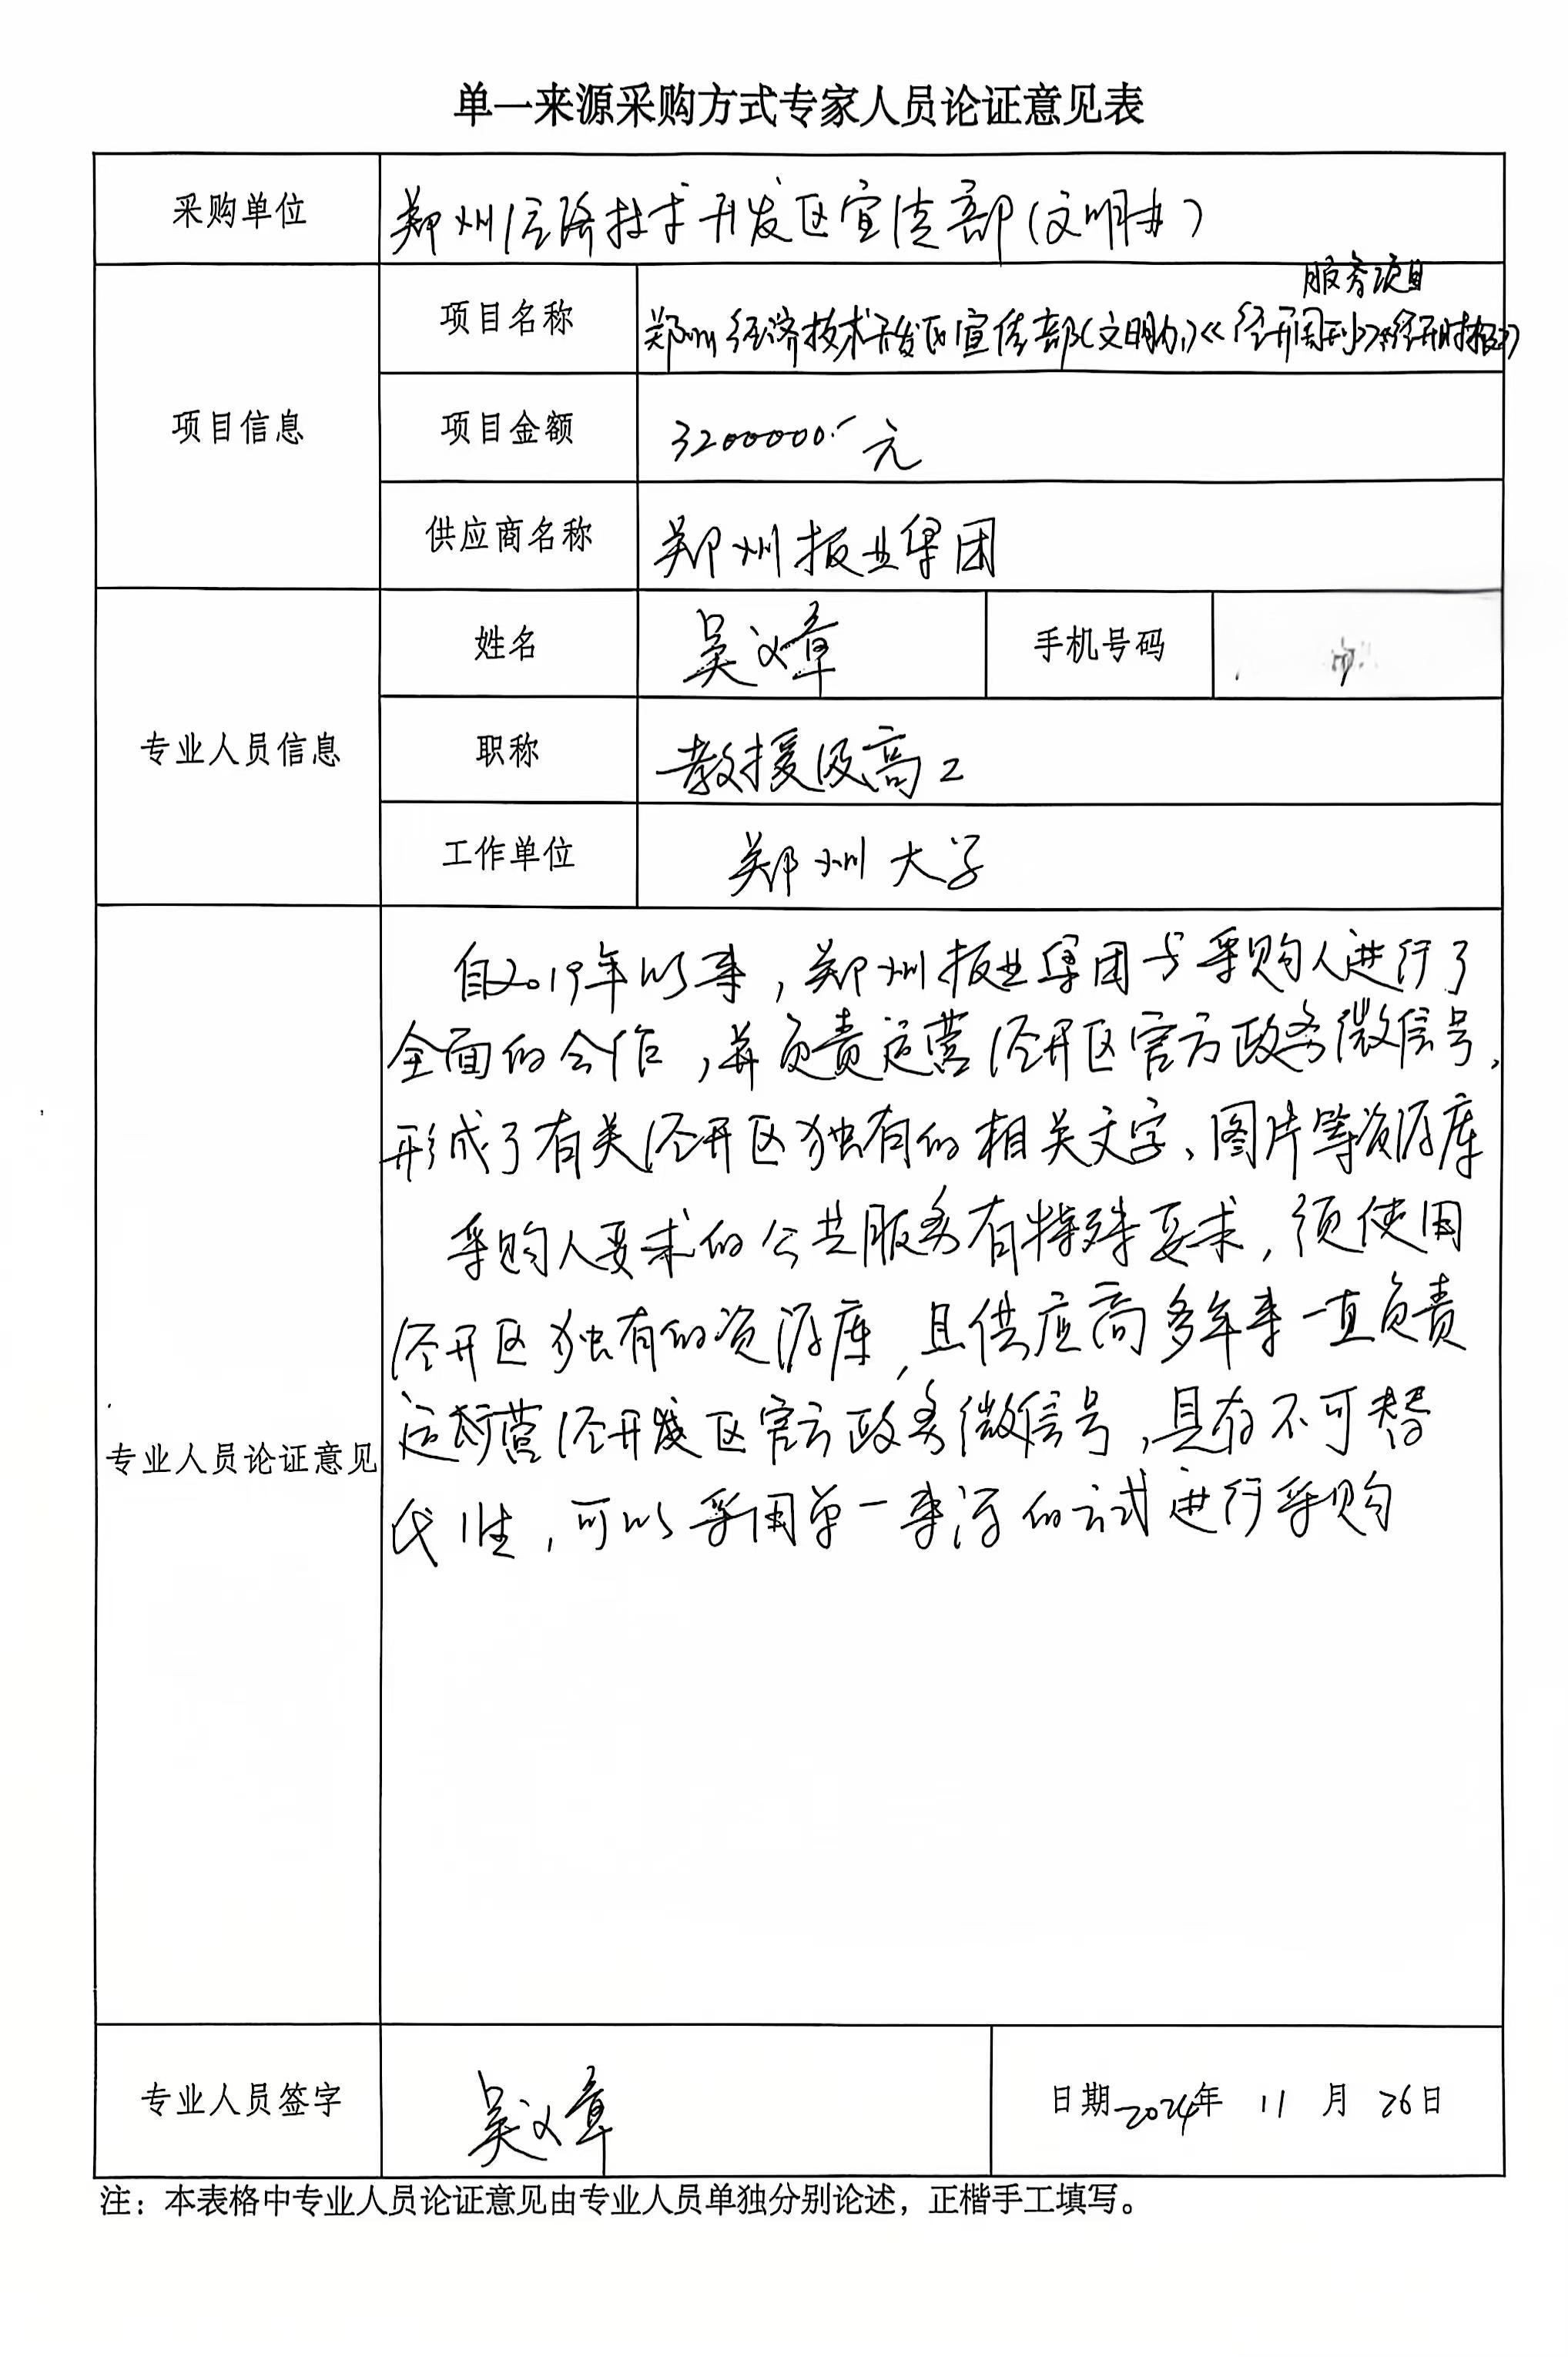 单一来源采购方式专家人员论证意见表
采购单位
郑州经济技术开发区宣传部(文明办)
项目信息
项目名称
服务项目
郑州经济技术开发区宣传部(文明办)《经开周刊》《经开时报》
项目金额
3200000.- 元
供应商名称
郑州报业集团
专业人员信息
姓名
吴义章
手机号码
职称
教授级高工
工作单位
郑州大学
专业人员论证意见
自2019年以来,郑州报业集团与采购人进行了
全面的合作,并负责运营经开区官方政务微信号,
形成了有关经开区独有的相关文字、图片等资源库
采购人要求的公共服务有特殊要求,须使用
经开区独有的资源库,且供应商多年来一直负责
运营经开发区官方政务微信号,具有不可替
代性,可以采用单一来源的方式进行采购
专业人员签字
吴义章
日期2024年 11 月 26日
注:本表格中专业人员论证意见由专业人员单独分别论述,正楷手工填写。